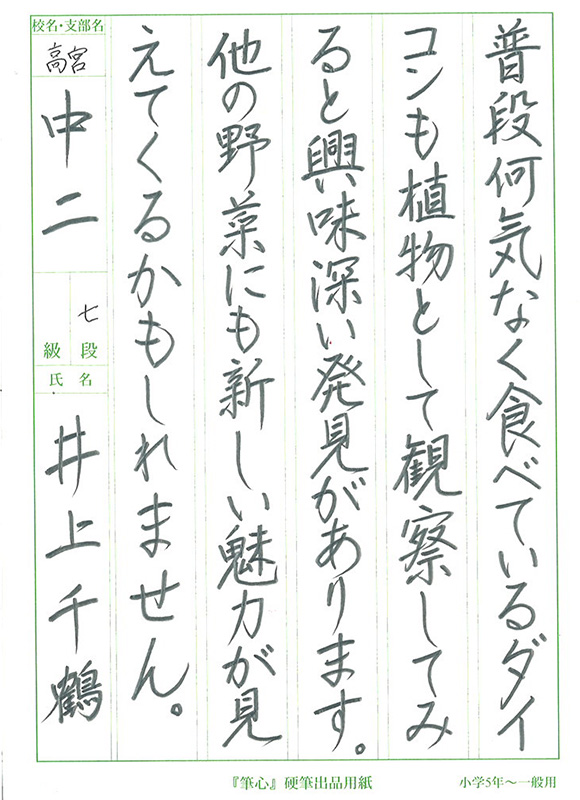 普段何気なく食べているダイ
コンも植物として観察してみ
ると興味深い発見があります。
他の野菜にも新しい魅力が見
えてくるかもしれません。
校名・支部名
高宮
中二
七
級段
氏名
井上千鶴
『筆心』硬筆出品用紙
小学5年〜一般用